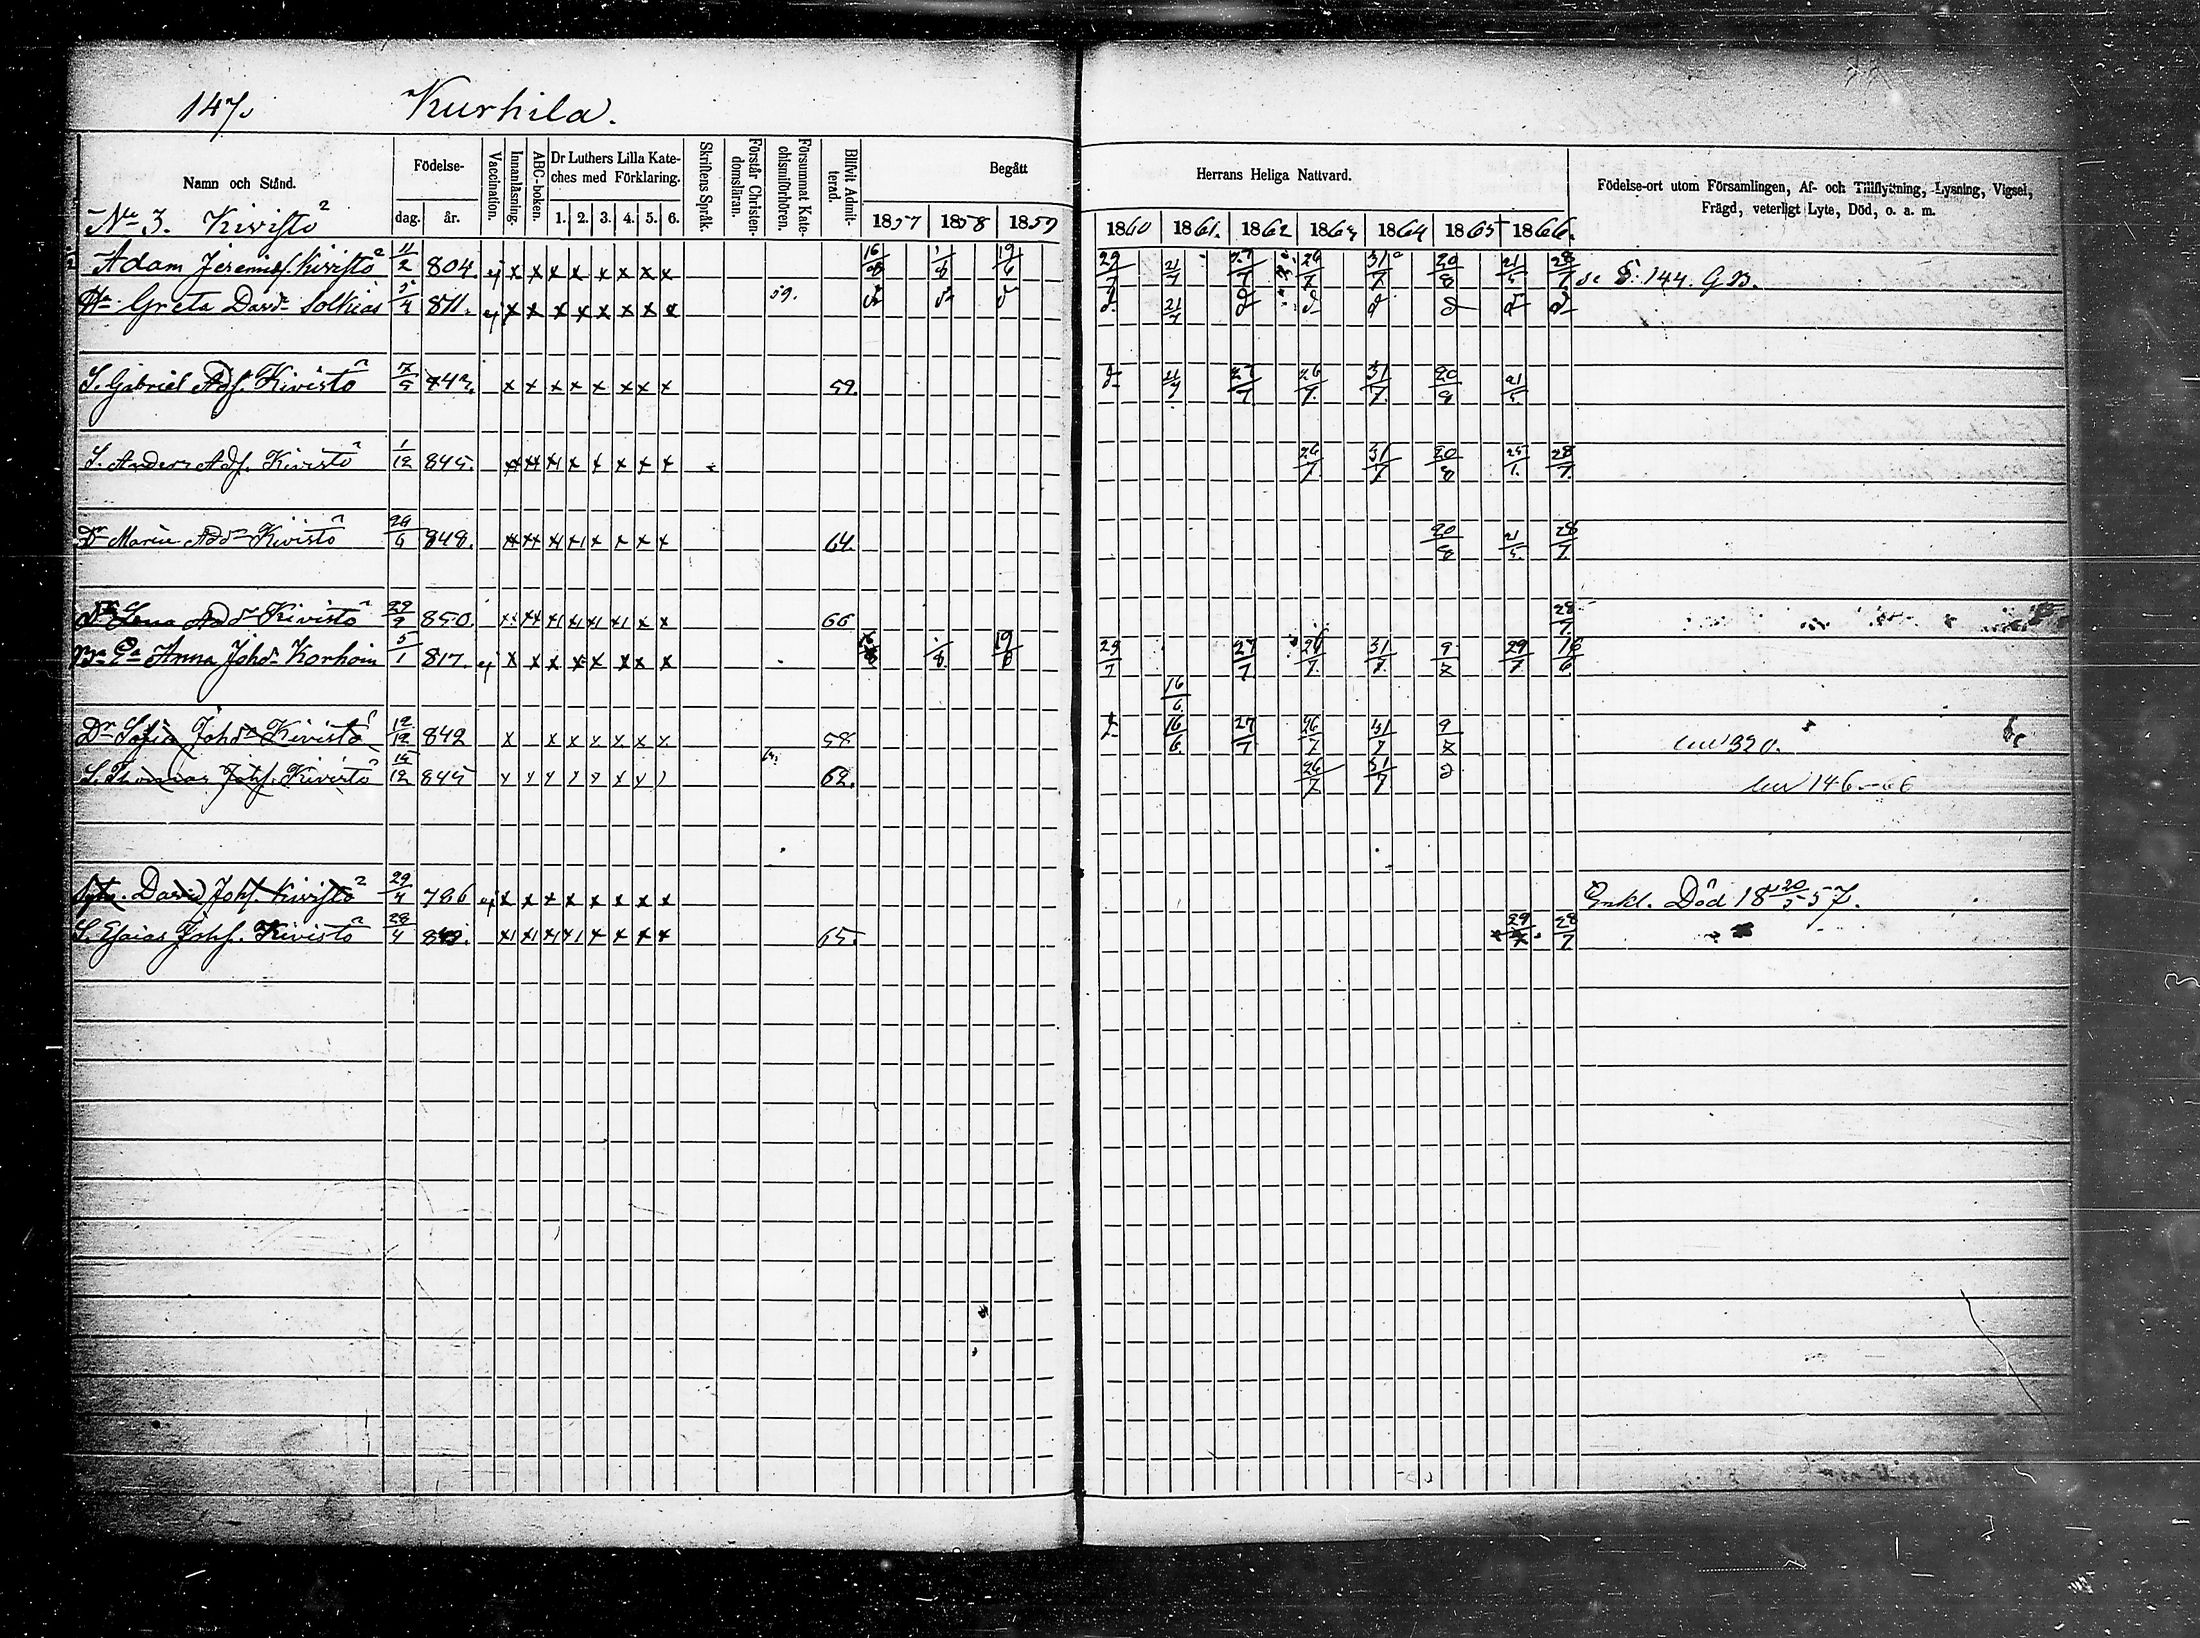 147. Kurhila.
Namn och Stånd. Födelse- dag. år. Vaccination. Innanläsning. ABC-boken. Dr Luthers Lilla Kateches med Förklaring. 1. 2. 3. 4. 5. 6. Skriftens Språk. Förstår Christendomsläran. Försummat Katechismiförhören. Blifvit Admitterad. Begått Herrans Heliga Nattvard. Födelse-ort utom Församlingen, Af- och Tillflyttning, Lysning, Vigsel, Frägd, veterligt Lyte, Död, o. a. m.
1857 1858 1859 1860 1861. 1862 1863 1864 1865 1866.
No 3. Kivistö
Adam Jeremiæs. Kivistö 11/2 804. ej x x x x x x x x 16/8 1/8 19/6 29/7 21/7 27/7 26/7 31/7 20/8 21/5 28/7 se S. 144. G.B.
Hu Greta Davdr Solkias 5/4 811. ej x x x x x x x x 59. 21/7
S. Gabriel Ads. Kivistö 7/5 843. x x x x x x x x 59. 21/7 27/7 26/7 31/7 20/8 21/5
S. Anders Ads. Kivistö 1/12 845. x x x x x x x x 26/7 31/7 20/8 25/1 28/7
Dr Maria Addr Kivistö 26/6 848. x x x x x x x x 64. 20/8 21/5 28/7
Dr Lena Addr Kivistö 29/9 850. x x x x x x x x 66 28/7
Anna Johdr Korhoin 5/1 817. ej x x x x x x x x 1/8 19/6 29/7 27/7 26/7 31/7 9/7 29/7 16/6
16/6
Dr Sofia Johdr Kivistö 12/12 842 x x x x x x x 58 16/6 27/7 26/7 31/7 9/7 320.
S. Thomas Johs. Kivistö 15/12 845 62. 26/7 31/7 146-66
David Johs. Kivistö 29/4 786 ej x x x x x x x x Enkl. Död 18 20/5 57.
S. Esaias Johs. Kivistö 28/4 849. x x x x x x x x 65. 29/7 28/7